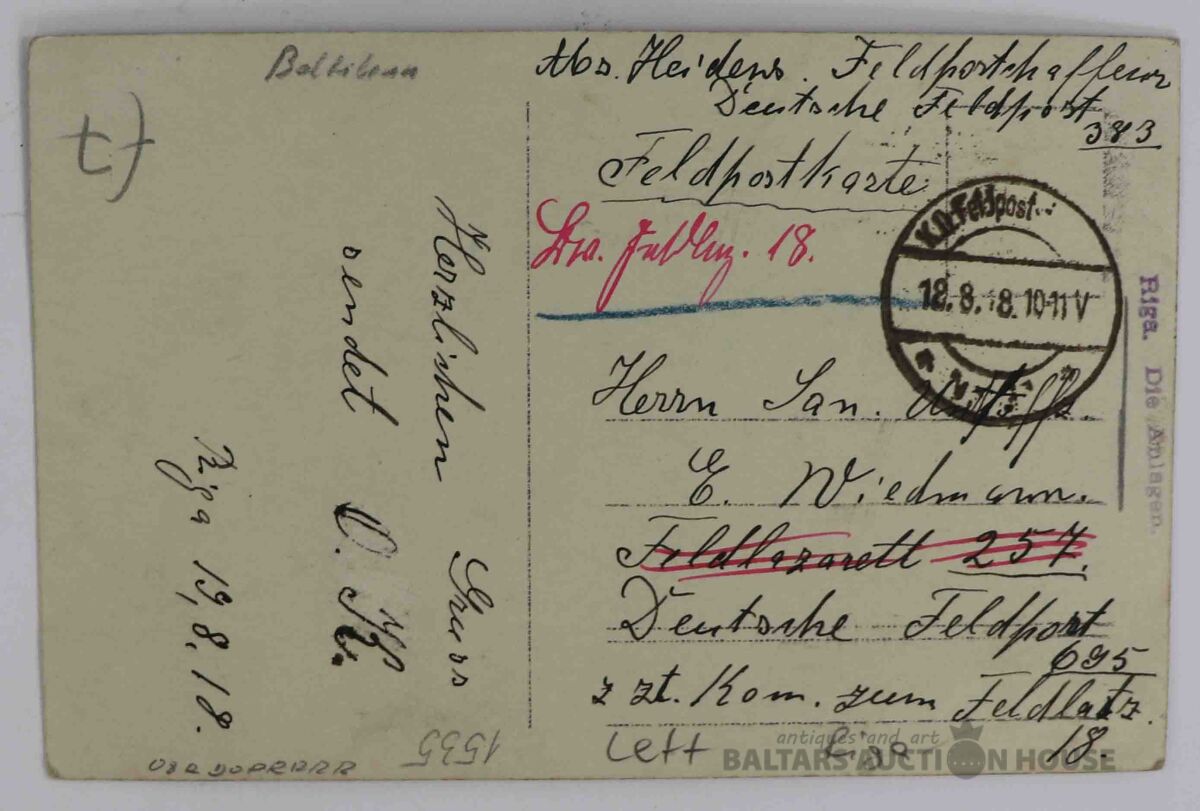 Abs. Heidens. Feldpostschaffner
Deutsche Feldpost
383
Feldpostkarte
18.
K.D. Feldpost
18.8.18. 10-11 V
Herrn San. Uttffz.
E. Wiedmann.
Feldlazarett 257.
Deutsche Feldpost
695
z zt. Kom. zum Feldlatz.
18.
Riga. Die Anlagen.
Herzlichen Gruss
sendet O. H.
Riga 19,8,18.
1535
Lett
antiques and art
BALTARS AUCTION HOUSE